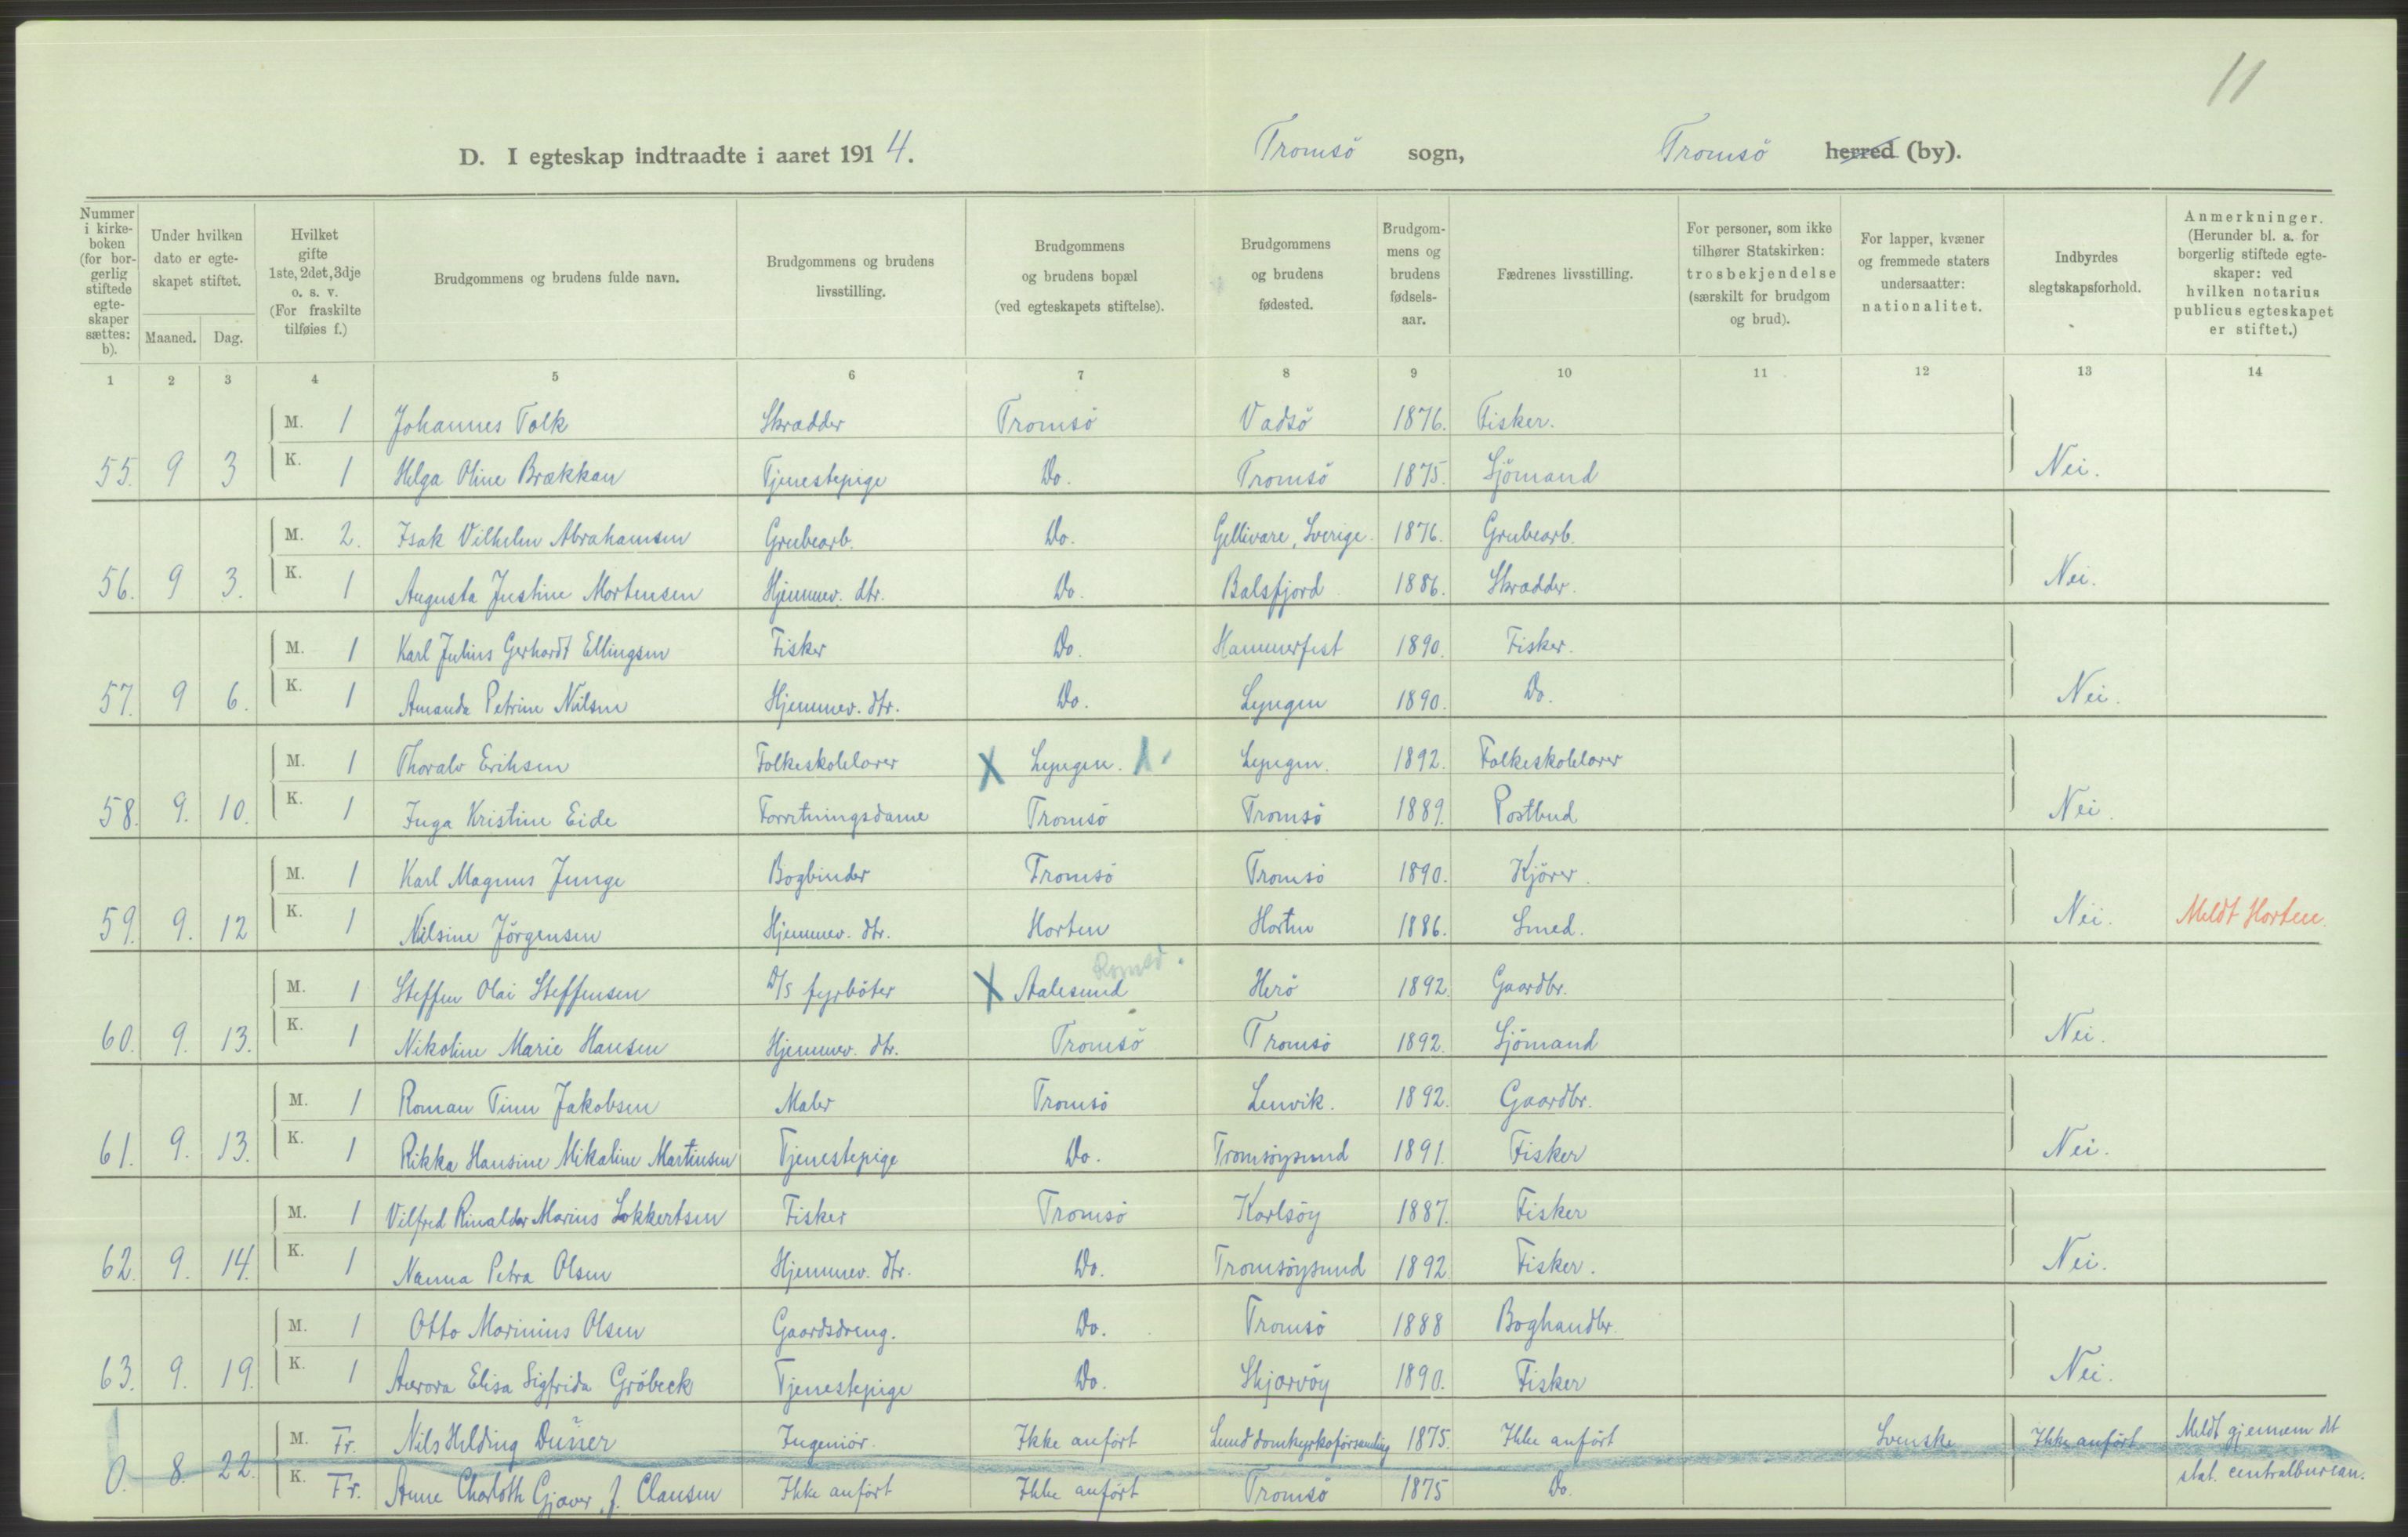 11
D. I egteskap indtraadte i aaret 1914. Tromsö sogn, Tromsö herred (by).
Nummer i kirkeboken (for borgerlig stiftede egteskaper sættes: b).
Under hvilken dato er egteskapet stiftet.
Maaned. Dag.
Hvilket gifte 1ste, 2det, 3dje o. s. v. (For fraskilte tilføies f.)
Brudgommens og brudens fulde navn.
Brudgommens og brudens livsstilling.
Brudgommens og brudens bopæl (ved egteskapets stiftelse).
Brudgommens og brudens fødested.
Brudgommens og brudens fødselsaar.
Fædrenes livsstilling.
For personer, som ikke tilhører Statskirken: trosbekjendelse (særskilt for brudgom og brud).
For lapper, kvæner og fremmede staters undersaatter: nationalitet.
Indbyrdes slegtskapsforhold.
Anmerkninger. (Herunder bl. a. for borgerlig stiftede egteskaper: ved hvilken notarius publicus egteskapet er stiftet.)
1 2 3 4 5 6 7 8 9 10 11 12 13 14
M. 1 Johannes Falk Skrædder Tromsö Vadsö 1876. Fisker.
55. 9 3 K. 1 Helga Oline Brækkan Tjenestepige Do. Tromsö 1875. Sjömand Nei.
M. 2. Isak Vilhelm Abrahamsen Grubearb. Do. Gellivare, Sverige. 1876. Grubearb.
56. 9 3. K. 1 Augusta Justine Mortensen Hjemmev. dtr. Do. Balsfjord 1886. Skrædder. Nei.
M. 1 Karl Julius Gerhardt Ellingsen Fisker Do. Hammerfest 1890. Fisker.
57. 9 6. K. 1 Amanda Petrine Nilsen Hjemmev. dtr. Do. Lyngen 1890. Do. Nei.
M. 1 Thoralv Eriksen Folkeskolelærer X Lyngen. Lyngen. 1892. Folkeskolelærer
58. 9. 10. K. 1 Inga Kristine Eide Forretningsdame Tromsö Tromsö 1889. Postbud Nei.
M. 1 Karl Magnus Junge Bogbinder Tromsö Tromsö 1890. Kjörer.
59. 9. 12 K. 1 Nilsine Jörgensen Hjemmev. dtr. Horten Horten 1886. Smed. Nei. Meldt Horten.
Romsd.
M. 1 Steffen Olai Steffensen D/S fyrböter X Aalesund Herö 1892. Gaardbr.
60. 9. 13. K. 1 Nikoline Marie Hansen Hjemmev. dtr. Tromsö Tromsö 1892. Sjömand Nei.
M. 1 Roman Finn Jakobsen Maler Tromsö Lenvik. 1892. Gaardbr.
61. 9. 13. K. 1 Rikka Hansine Mikaline Martinsen Tjenestepige Do. Tromsöysund 1891. Fisker Nei.
M. 1 Vilfred Rinaldor Marius Lokkertsen Fisker Tromsö Karlsöy 1887. Fisker
62. 9. 14. K. 1 Nanna Petra Olsen Hjemmev. dtr. Do. Tromsöysund 1892. Fisker. Nei.
M. 1 Otto Marinius Olsen Gaardsdreng. Do. Tromsö 1888 Boghandlr.
63. 9. 19. K. 1 Aurora Elisa Sigfrida Gröbeck Tjenestepige Do. Skjærvöy 1890. Fisker Nei.
M. Fr. Nils Helding Dunér Ingeniör. Ikke anfört Lund domkyrkoförsamling 1875. Ikke anfört Svenske Ikke anfört Meldt gjennem det
0. 8. 22. K. Fr. Anne Charloth Gjæver f. Clausen Ikke anfört Ikke anfört Tromsö 1875 Do. stat. centralbureau.